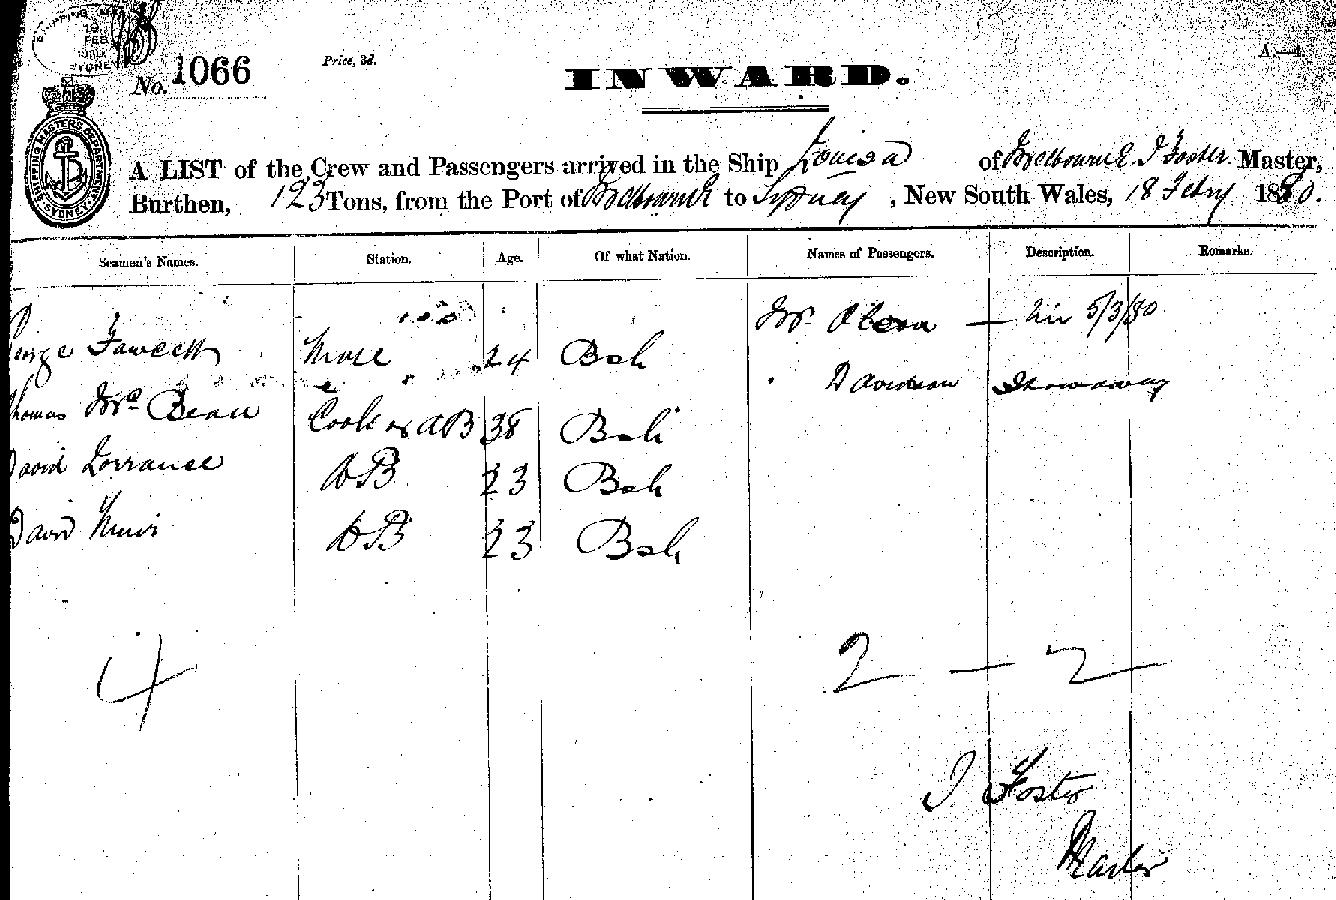 FEB
SYDNEY
No. 1066
Price, 3d.
INWARD.
A.—1
SHIPPING MASTERS DEPARTMENT
SYDNEY
A LIST of the Crew and Passengers arrived in the Ship Louisa of Melbourne I Foster Master,
Burthen, 123 Tons, from the Port of Melbourne to Sydney, New South Wales, 18 Febry 1880.
Seamen's Names. Station. Age. Of what Nation. Names of Passengers. Description. Remarks.
5/3/80
George Fawcett Mate 24 Bsh
Davidson Stowaway
Thomas McBean Cook & AB 38 Bsh
David Lorrance AB 23 Bsh
David Muir AB 23 Bsh
4 2 — 2
I Foster
Master